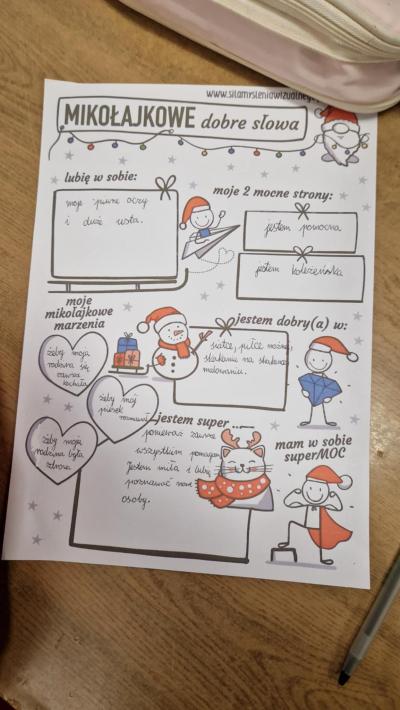 www.silamysleniawizualnego
MIKOŁAJKOWE dobre słowa
lubię w sobie:
moje oczy
i duże usta.
moje 2 mocne strony:
jestem pomocna
jestem koleżeńska
moje
mikołajkowe
marzenia
żeby moja
rodzina się
zawsze
kochała
żeby mój
piesek
rozmawiał
żeby moja
rodzina była
zdrowa
jestem dobry(a) w:
siatce, piłce nożnej
skakaniu na skakance
malowaniu.
jestem super
ponieważ zawsze
wszystkim pomagam
Jestem miła i lubię
poznawać nowe
osoby.
mam w sobie
superMOC